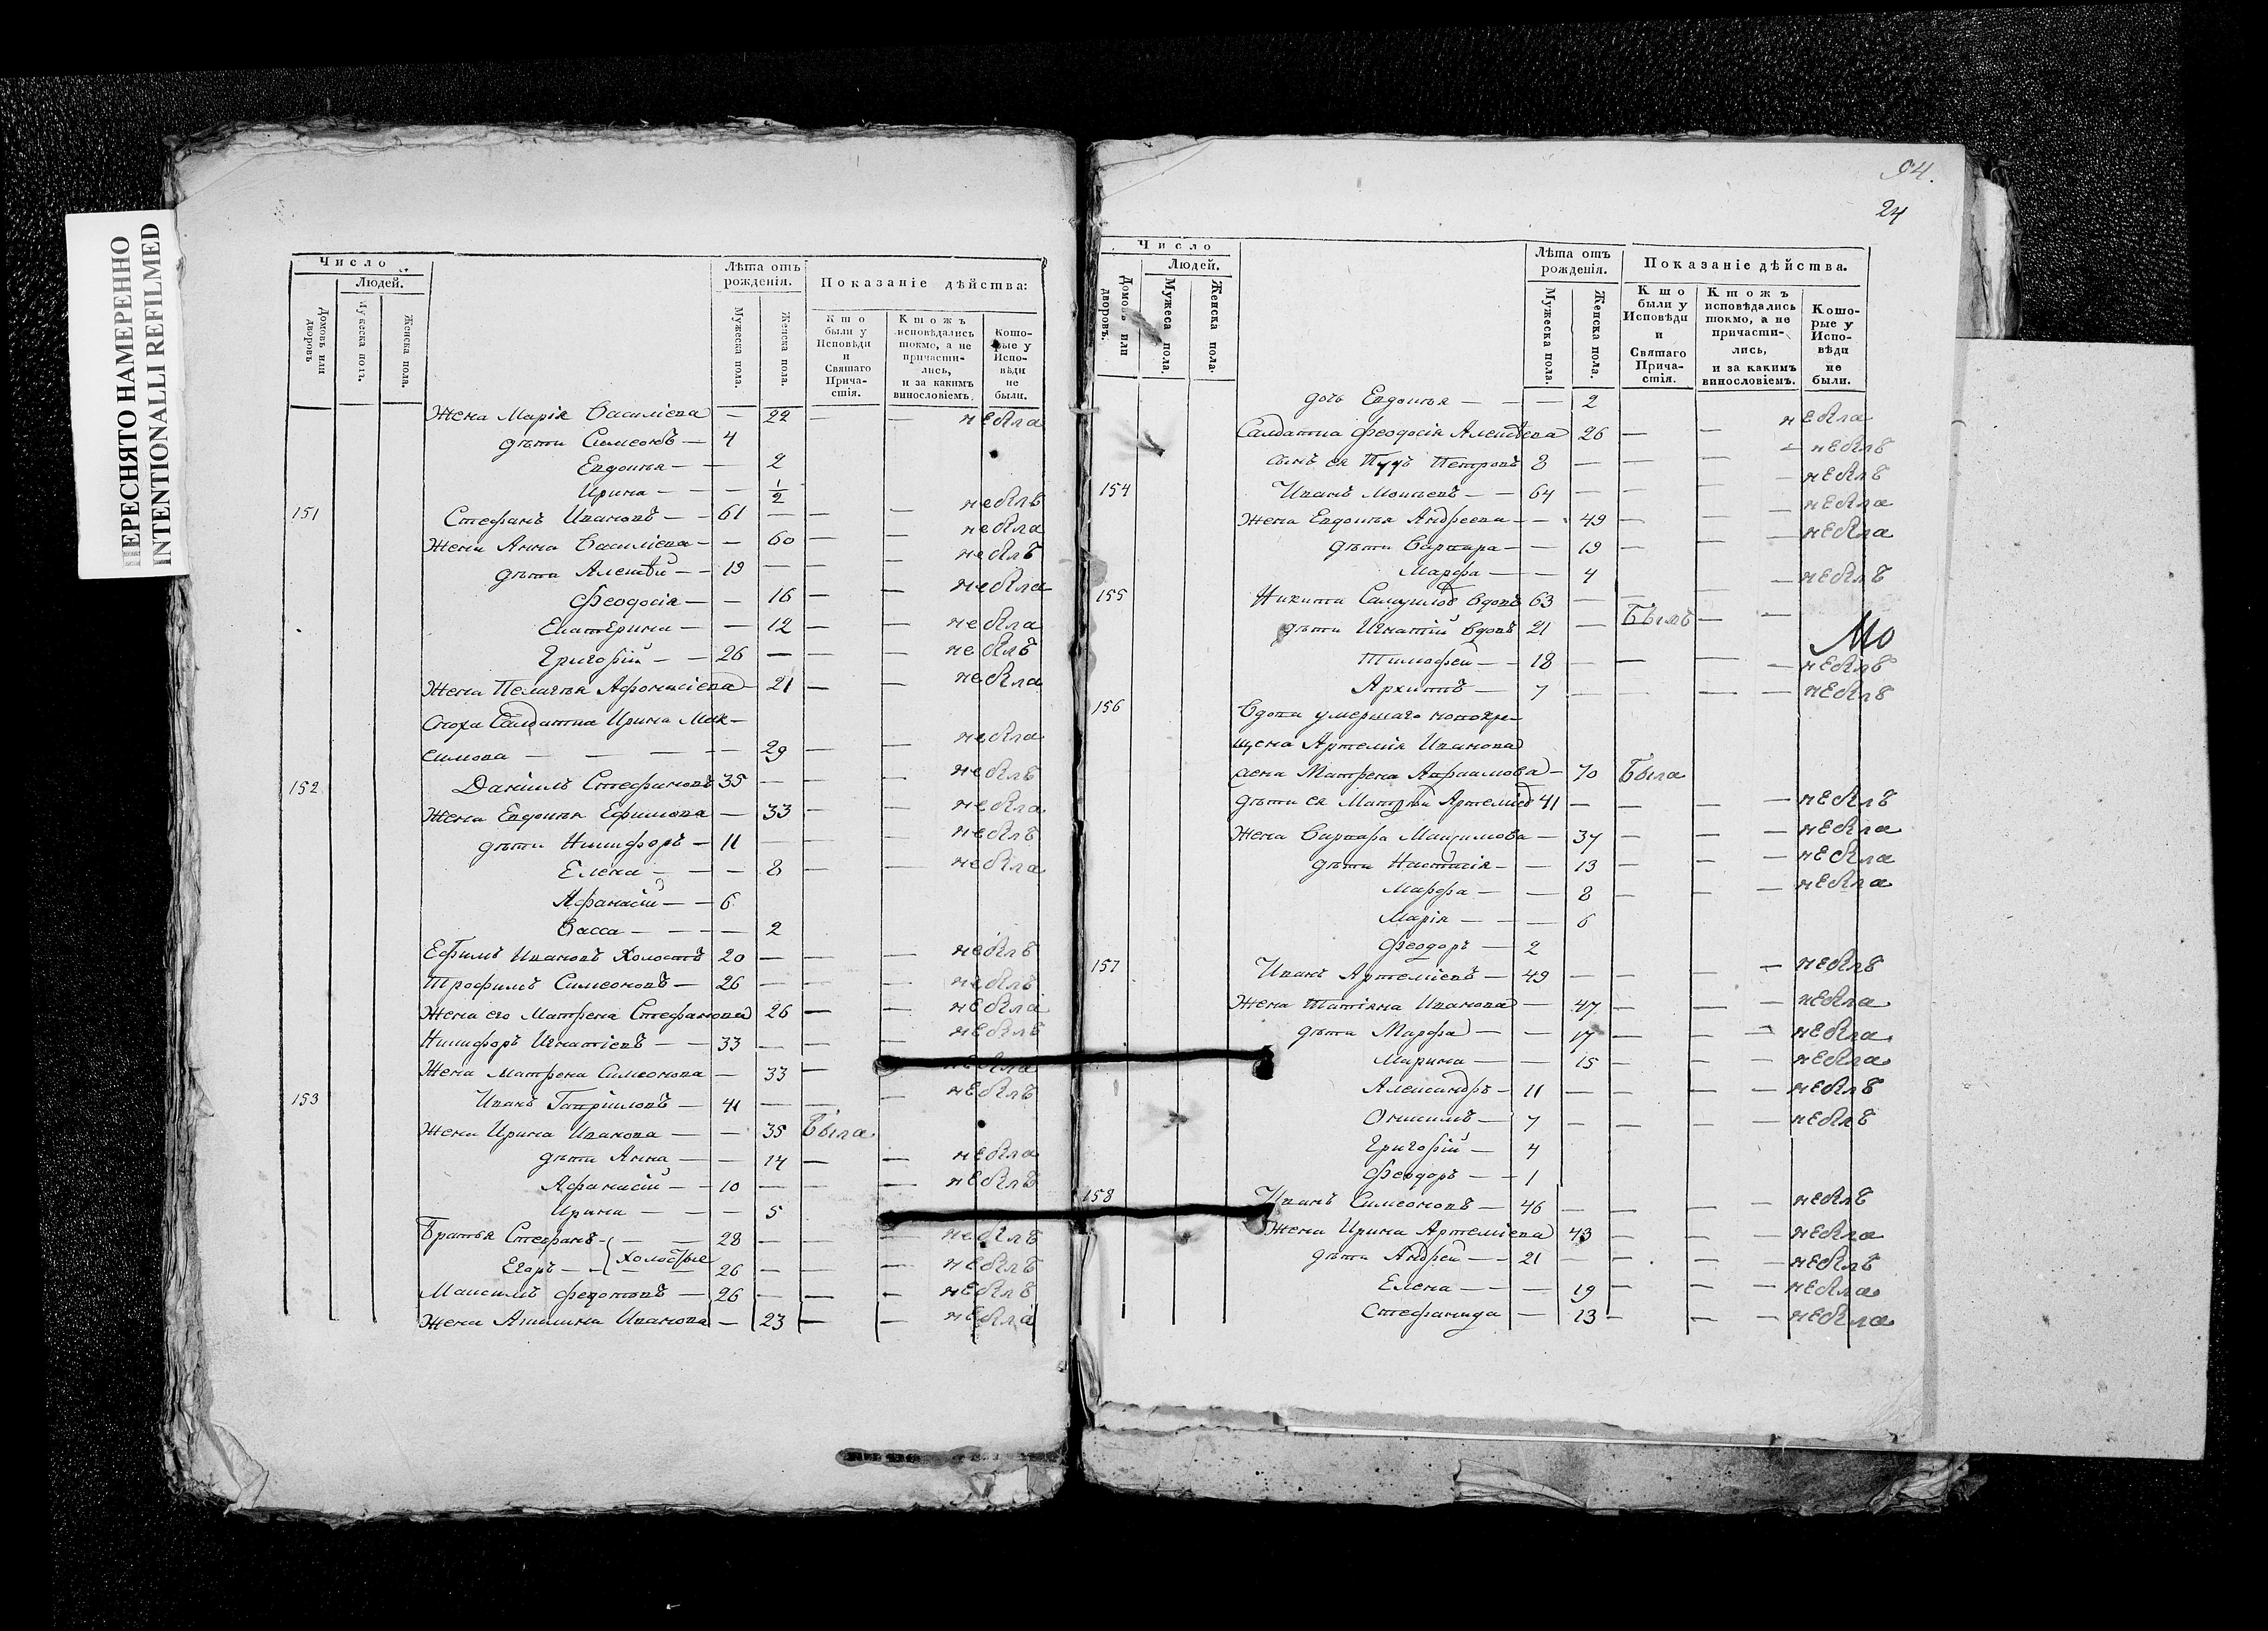 ПЕРЕСНЯТО НАМЕРЕННО
INTENTIONALLI REFILMED
Число
Людей.
Домовъ или дворовъ
Мужеска полъ.
Женска пола.
Лѣта отъ рожденія.
Мужеска пола.
Женска пола.
Показаніе дѣйства:
Кто были у Исповѣди и Святаго Прича-стія.
Ктожъ исповѣдались токмо, а не причасти-лись, и за какимъ винословіемъ.
Кото-рые у Испо-вѣди не были.
Жена Марія Василіева — 22 — — небыла
дѣти Симеонъ — 4
Евдокія — — 2
Ирина — — — 1/2
151 Стефанъ Ивановъ — — 61 — — — небылъ
Жена Анна Василіева — — 60 — — небыла
дѣти Алексѣй — — 19 — — — небылъ
Феодосія — — 16 — — небыла
Екатерина — — 12 — — небыла
Григорій — — 26 — — — небылъ
Жена Пелагія Афонасіева — 21 — — небыла
Сноха Салдатка Ирина Мак-
симова — — — — 29 — — небыла
152 Даніилъ Стефановъ 35 — — — небылъ
Жена Евдокія Ефимова — 33 — — небыла
дѣти Никифоръ — 11 — — — небылъ
Елена — — — 8 — — небыла
Афанасій — — 6
Васса — — — — 2
Ефимъ Ивановъ Холостъ 20 — — — небылъ
Трофимъ Симеоновъ — 26 — — — небылъ
Жена его Матрена Стефанова 26 — — небыла
Никифоръ Игнатіевъ — — 33 — — — небылъ
Жена Матрена Симеонова — 33 — небыла
153 Иванъ Гавріиловъ — 41 — — — небылъ
Жена Ирина Иванова — — 35 Была
дѣти Анна — — 14 — — небыла
Афанасій — — 10 — — — небылъ
Ирина — — — 5
Братья Стефанъ — — — 28 — — — небылъ
холостые
Егоръ — — — — 26 — — — небылъ
Максимъ Федотовъ — 26 — — — небылъ
Жена Акилина Иванова — 23 — — небыла
94.
24
Число
Людей.
Домовъ или дворовъ.
Мужеса пола.
Женска пола.
Лѣта отъ рожденія.
Мужеска пола.
Женска пола.
Показаніе дѣйства.
Кто были у Исповѣди и Святаго Прича-стія.
Ктожъ исповѣдались токмо, а не причасти-лись, и за какимъ винословіемъ.
Кото-рые у Испо-вѣди не были.
дочь Евдокія — — — 2
Салдатка Феодосія Алексѣева 26 — — небыла
сынъ ея Петровъ 8 — — — небылъ
154 Иванъ Моисеевъ — — 64 — — — небылъ
Жена Евдокія Андреева — — 49 — — небыла
дѣти Варвара — — 19 — — небыла
Марфа — — 4
155 Никита Самуиловъ вдовъ 63 — — — небылъ
дѣти Игнатій вдовъ 21 — Былъ — —
Тимофей — — 18 — — — небылъ
Архипъ — 7 — — — небылъ
156 Вдова умершаго новокре-
щена Артемія Иванова
жена Матрена Авраамова — 70 Была
дѣти ея Матвѣй Артеміевъ 41 — — — небылъ
Жена Варвара Максимова — 37 — — небыла
дѣти Настасія — — 13 — — небыла
Марфа — — 8 — — небыла
Марія — — — 6
Феодоръ — 2
157 Иванъ Артеміевъ — 49 — — — небылъ
Жена Татіяна Иванова — 47 — — небыла
дѣти Марфа — — 17 — — небыла
Марина — — 15 — — небыла
Александръ — 11 — — — небылъ
Онисимъ — 7 — — — небылъ
Григорій — 4
Феодоръ — — 1
158 Иванъ Симеоновъ — 46 — — — небылъ
Жена Ирина Артеміева 43 — — небыла
дѣти Андрей — — 21 — — — небылъ
Елена — — — 19 — — небыла
Стефанида — 13 — — небыла